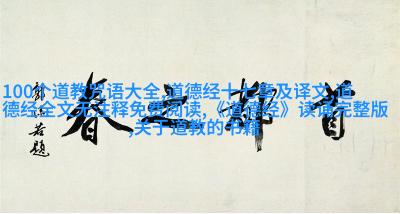 100个道教咒语大全,道德经十七章及译文,道
德经全文无注释免费阅读,《道德经》读诵完整版
,关于道教的书籍
首都之春
郭沫若题